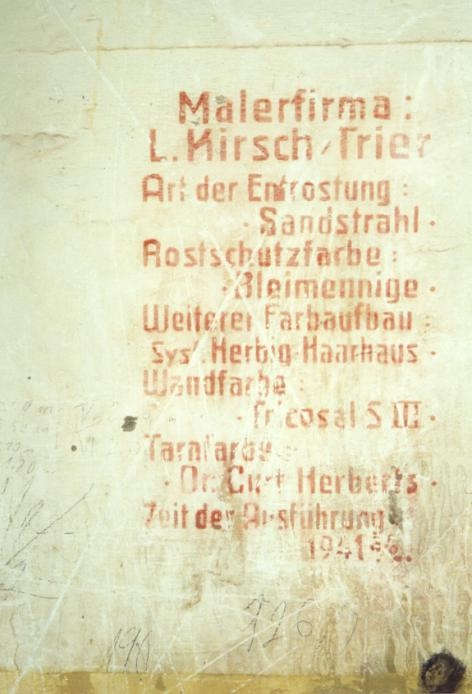 Malerfirma :
L. Kirsch, Trier
Art der Entrostung :
· Sandstrahl ·
Rostschutzfarbe :
· Bleimennige ·
Weiterer Farbaufbau :
Syst. Herbig-Haarhaus ·
Wandfarbe :
· Tricosal S III ·
Tarnfarbe :
· Dr. Curt Herberts ·
Zeit der Ausführung
1941